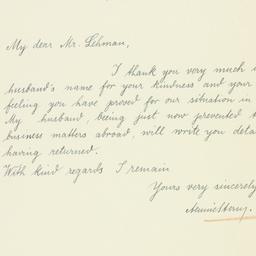 My dear Mr. Lehman,
I thank you very much
husband's name for your kindness and your
feeling you have proved for our situation in
My husband, being just now prevented
business matters abroad, will write you
having returned.
With kind regards I remain
Yours very sincerely